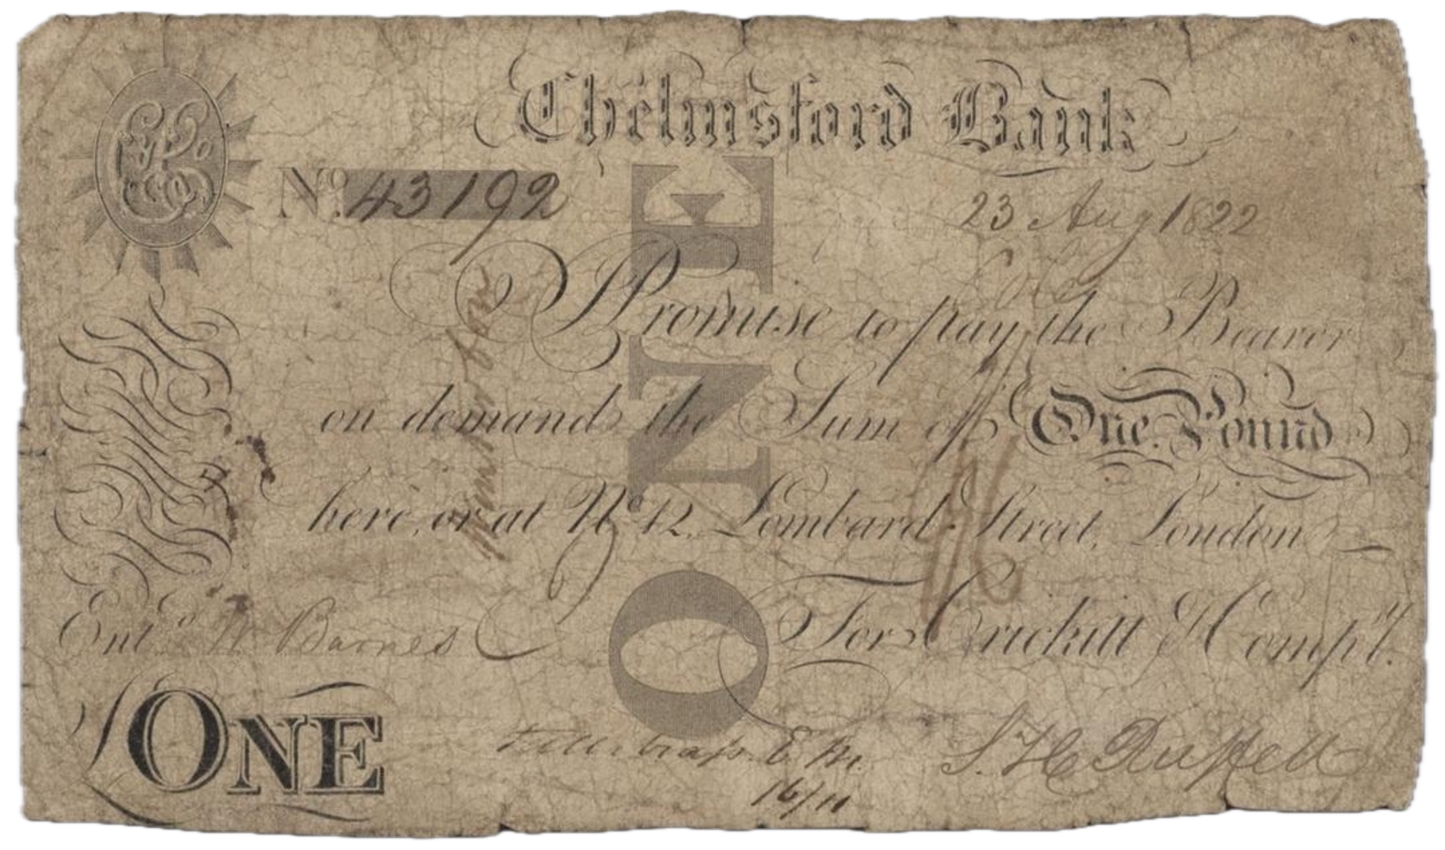 Chelmsford Bank
No. 43192
23 Aug 1822
I Promise to pay the Bearer
on demand the Sum of One Pound
here, or at No. 42, Lombard Street, London
For Crickitt & Compy.
Entd. W Barnes
ONE
ONE
S. H. Russell
16/11